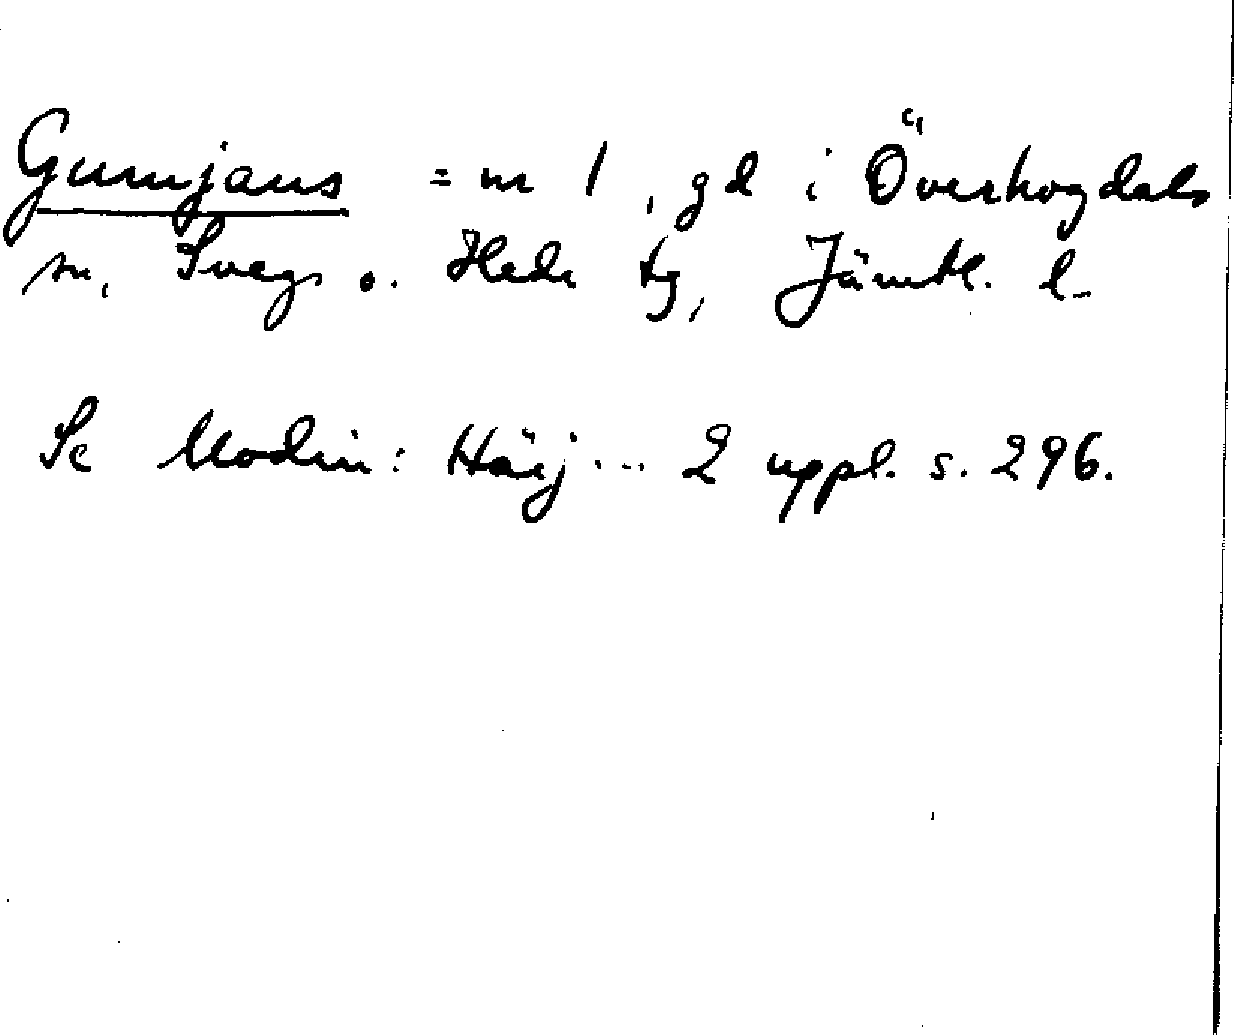 Gunnjans = nr 1, gd i Överhogdals
sn, Svegs o. Hede tg, Jämtl. l.
Se Modin: Härj... 2 uppl. s. 296.